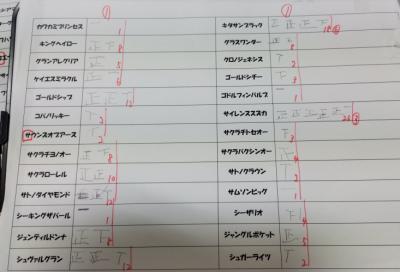 ① ①
カワカミプリンセス 一 1 キタサンブラック 正 正 正 下 18
キングヘイロー 正 下 8 グラスワンダー 正 下 8
グランアレグリア 正 5 クロノジェネシス T 2
ケイエスミラクル 正 一 6 ゴールドシチー 下 3
ゴールドシップ 正 正 T 12 ゴドルフィンバルブ 一 1
コパノリッキー T 2 サイレンススズカ 正 正 正 正 正
サウンズオブアース T 2 サクラチトセオー 下 3
サクラチヨノオー 正 下 8 サクラバクシンオー
サクラローレル 正 正 10 サトノクラウン T 2
サトノダイヤモンド 正 正 T 12 サムソンビッグ 一 1
シーキングザパール 一 1 シーザリオ 4
ジェンティルドンナ 正 下 8 ジャングルポケット 正 5
シュヴァルグラン 正 正 T 12 シュガーライツ T 2